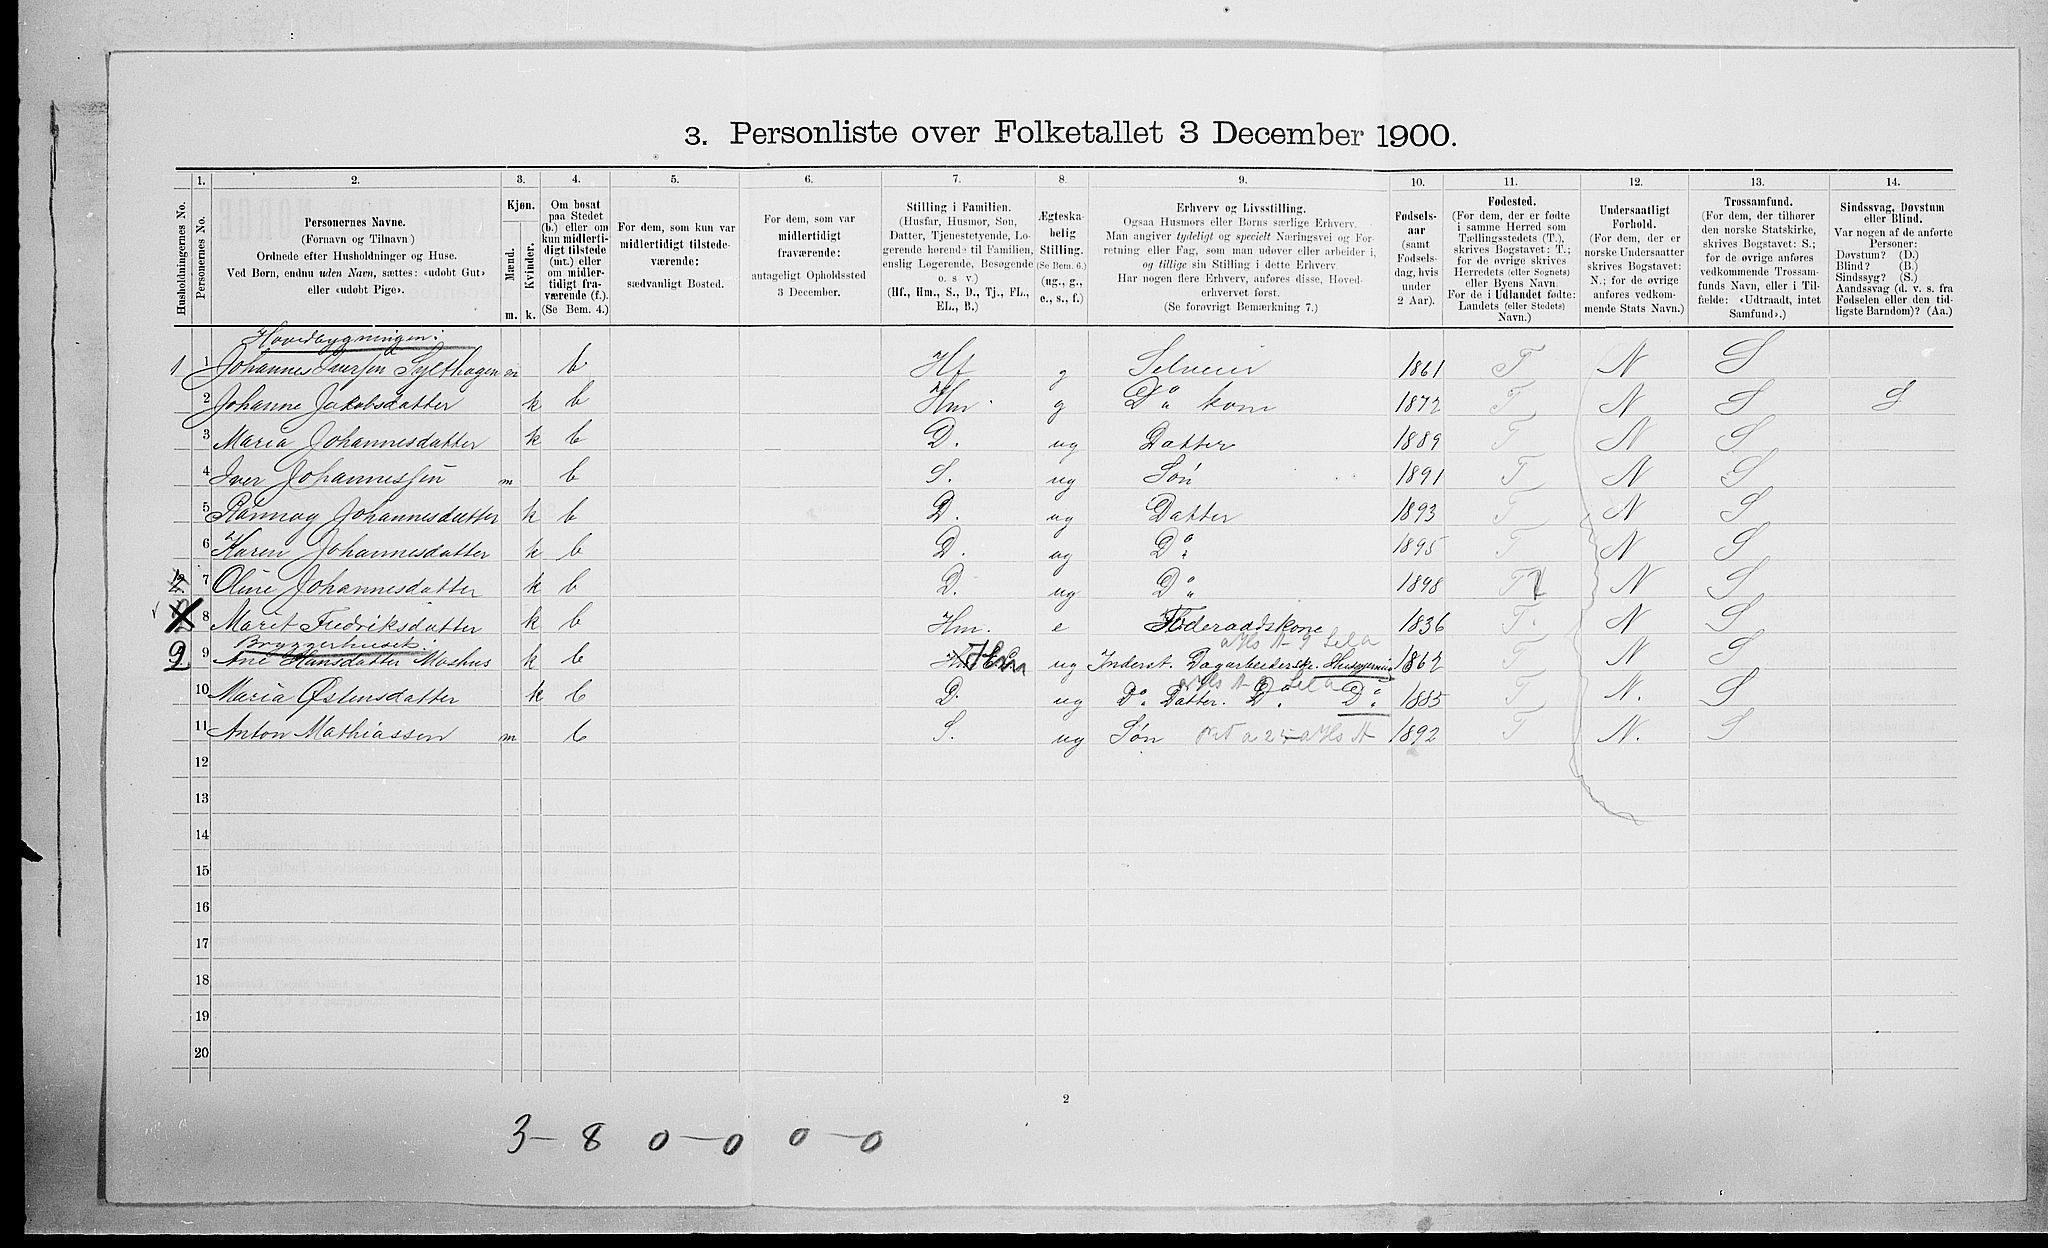 3. Personliste over Folketallet 3 December 1900.
1. 2. 3. 4. 5. 6. 7. 8. 9. 10. 11. 12. 13. 14.
Husholdningernes No.
Personernes No.
Personernes Navne.
(Fornavn og Tilnavn)
Ordnede efter Husholdninger og Huse.
Ved Børn, endnu uden Navn, sættes: «udøbt Gut»
eller «udøbt Pige».
Kjøn.
Mænd.
Kvinder.
m. k.
Om bosat
paa Stedet
(b.) eller om
kun midlerti-
digt tilstede
(mt.) eller
om midler-
tidigt fra-
værende (f.).
(Se Bem. 4.)
For dem, som kun var
midlertidigt tilstede-
værende:
sædvanligt Bosted.
For dem, som var
midlertidigt
fraværende:
antageligt Opholdssted
3 December.
Stilling i Familien.
(Husfar, Husmor, Søn,
Datter, Tjenestetyende, Lo-
gerende hørende til Familien,
enslig Logerende, Besøgende
o. s. v.)
(Hf., Hm., S., D., Tj., FL.,
EL., B.)
Ægteska-
belig
Stilling.
(Se Bem. 6.)
(ug., g.,
e., s., f.)
Erhverv og Livsstilling.
Ogsaa Husmors eller Børns særlige Erhverv.
Man angiver tydeligt og specielt Næringsvei og For-
retning eller Fag, som man udøver eller arbeider i,
og tillige sin Stilling i dette Erhverv.
Har nogen flere Erhverv, anføres disse, Hoved-
erhvervet først.
(Se forøvrigt Bemærkning 7.)
Fødsels-
aar
(samt
Fødsels-
dag, hvis
under
2 Aar).
Fødested.
(For dem, der er fødte
i samme Herred som
Tællingsstedets (T.),
skrives Bogstavet: T.;
for de øvrige skrives
Herredets (eller Sognets)
eller Byens Navn.
For de i Udlandet fødte:
Landets (eller Stedets)
Navn.)
Undersaatligt
Forhold.
(For dem, der er
norske Undersaatter
skrives Bogstavet:
N.; for de øvrige
anføres vedkom-
mende Stats Navn.)
Trossamfund.
(For dem, der tilhører
den norske Statskirke,
skrives Bogstavet: S.;
for de øvrige anføres
vedkommende Trossam-
funds Navn, eller i Til-
fælde: «Udtraadt, intet
Samfund».)
Sindssvag, Døvstum
eller Blind.
Var nogen af de anførte
Personer:
Døvstum? (D.)
Blind? (B.)
Sindssyg? (S.)
Aandssvag (d. v. s. fra
Fødselen eller den tid-
ligste Barndom)? (Aa.)
Hovedbygningen:
1 1 Johannes Iversen Sylthagen m b Hf g Selveier 1861 T N S
2 Johanne Jakobsdatter k b Hm. g Do kone 1872 T N S S
3 Maria Johannesdatter k b D. ug Datter 1889 T N S
4 Iver Johannessen m b S. ug Søn 1891 T N S
5 Rønnog Johannesdatter k b D. ug Datter 1893 T N S
6 Karen Johannesdatter k b D. ug Do 1895 T N S
7 Oline Johannesdatter k b D. ug Do 1898 T N S
8 Marit Fredriksdatter k b Hm. e Føderaadskone 1836 T. N S
Bryggerhuset.
2 9 Ane Hansdatter Moshus k b Hm ug Inderst. Dagarbeiderske. Husgjerning 1862 T N S
10 Maria Østensdatter k b D. ug Do Datter. Do Do 1885 T N. S
11 Anton Mathiassen m b S. ug Søn 1892 T N. S
12
13
14
15
16
17
18
19
20
2
3 - 8 0 - 0 0 - 0